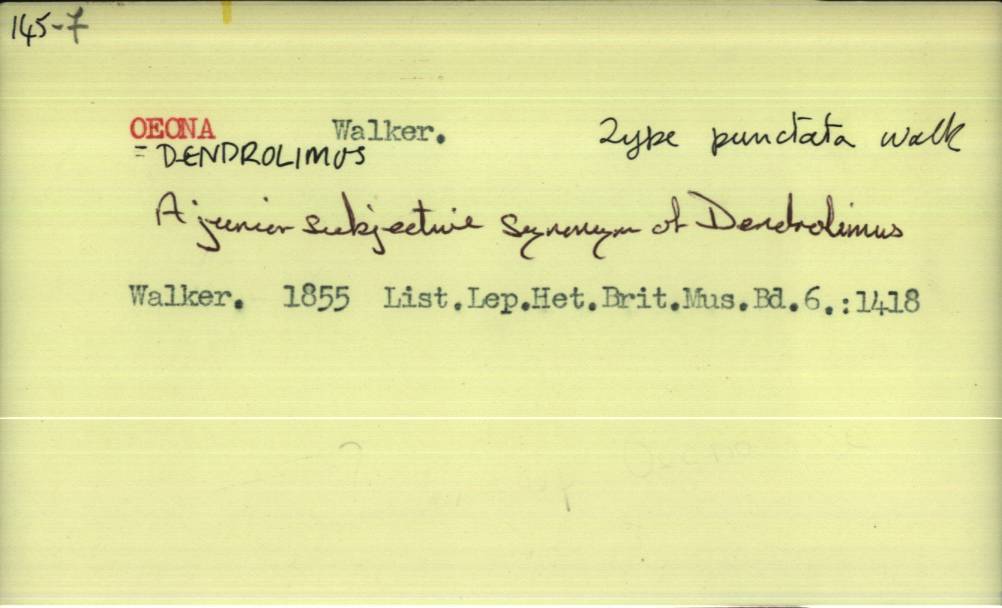 145-7
OEONA Walker. Type punctata Walk
= DENDROLIMUS
A junior subjective synonym of Dendrolimus
Walker. 1855 List.Lep.Het.Brit.Mus.Bd.6.:1418